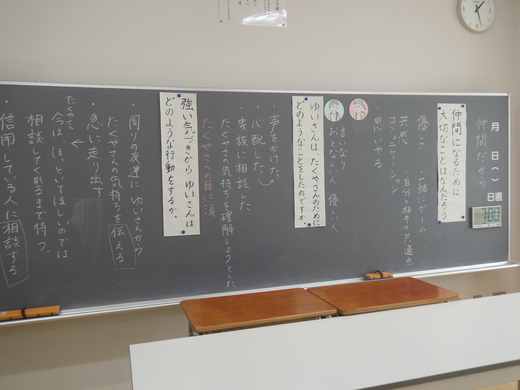 月 日( )
日直
仲間だから
仲間になるために
大切なことはなんだろう
優しさ 一緒にゲーム
コミュニケーション
共感 自分と相手の共通点
思いやる
おとなしい人 優しい人
ゆいさんは たくやさんのために
どのようなことをしたのですか。
声をかけた。
心配した
家族に相談した
たくやさんの気持ちを理解しようとした
たくやさんの目に涙
強い気づきから ゆいさんは
どのような行動をするか。
周りの友達に ゆいさんから
たくやさんの気持ちを伝える
急に走り出す
たくやさん
今は ほっといてほしいのでは
相談してくれるまで待つ。
信用している人に相談する